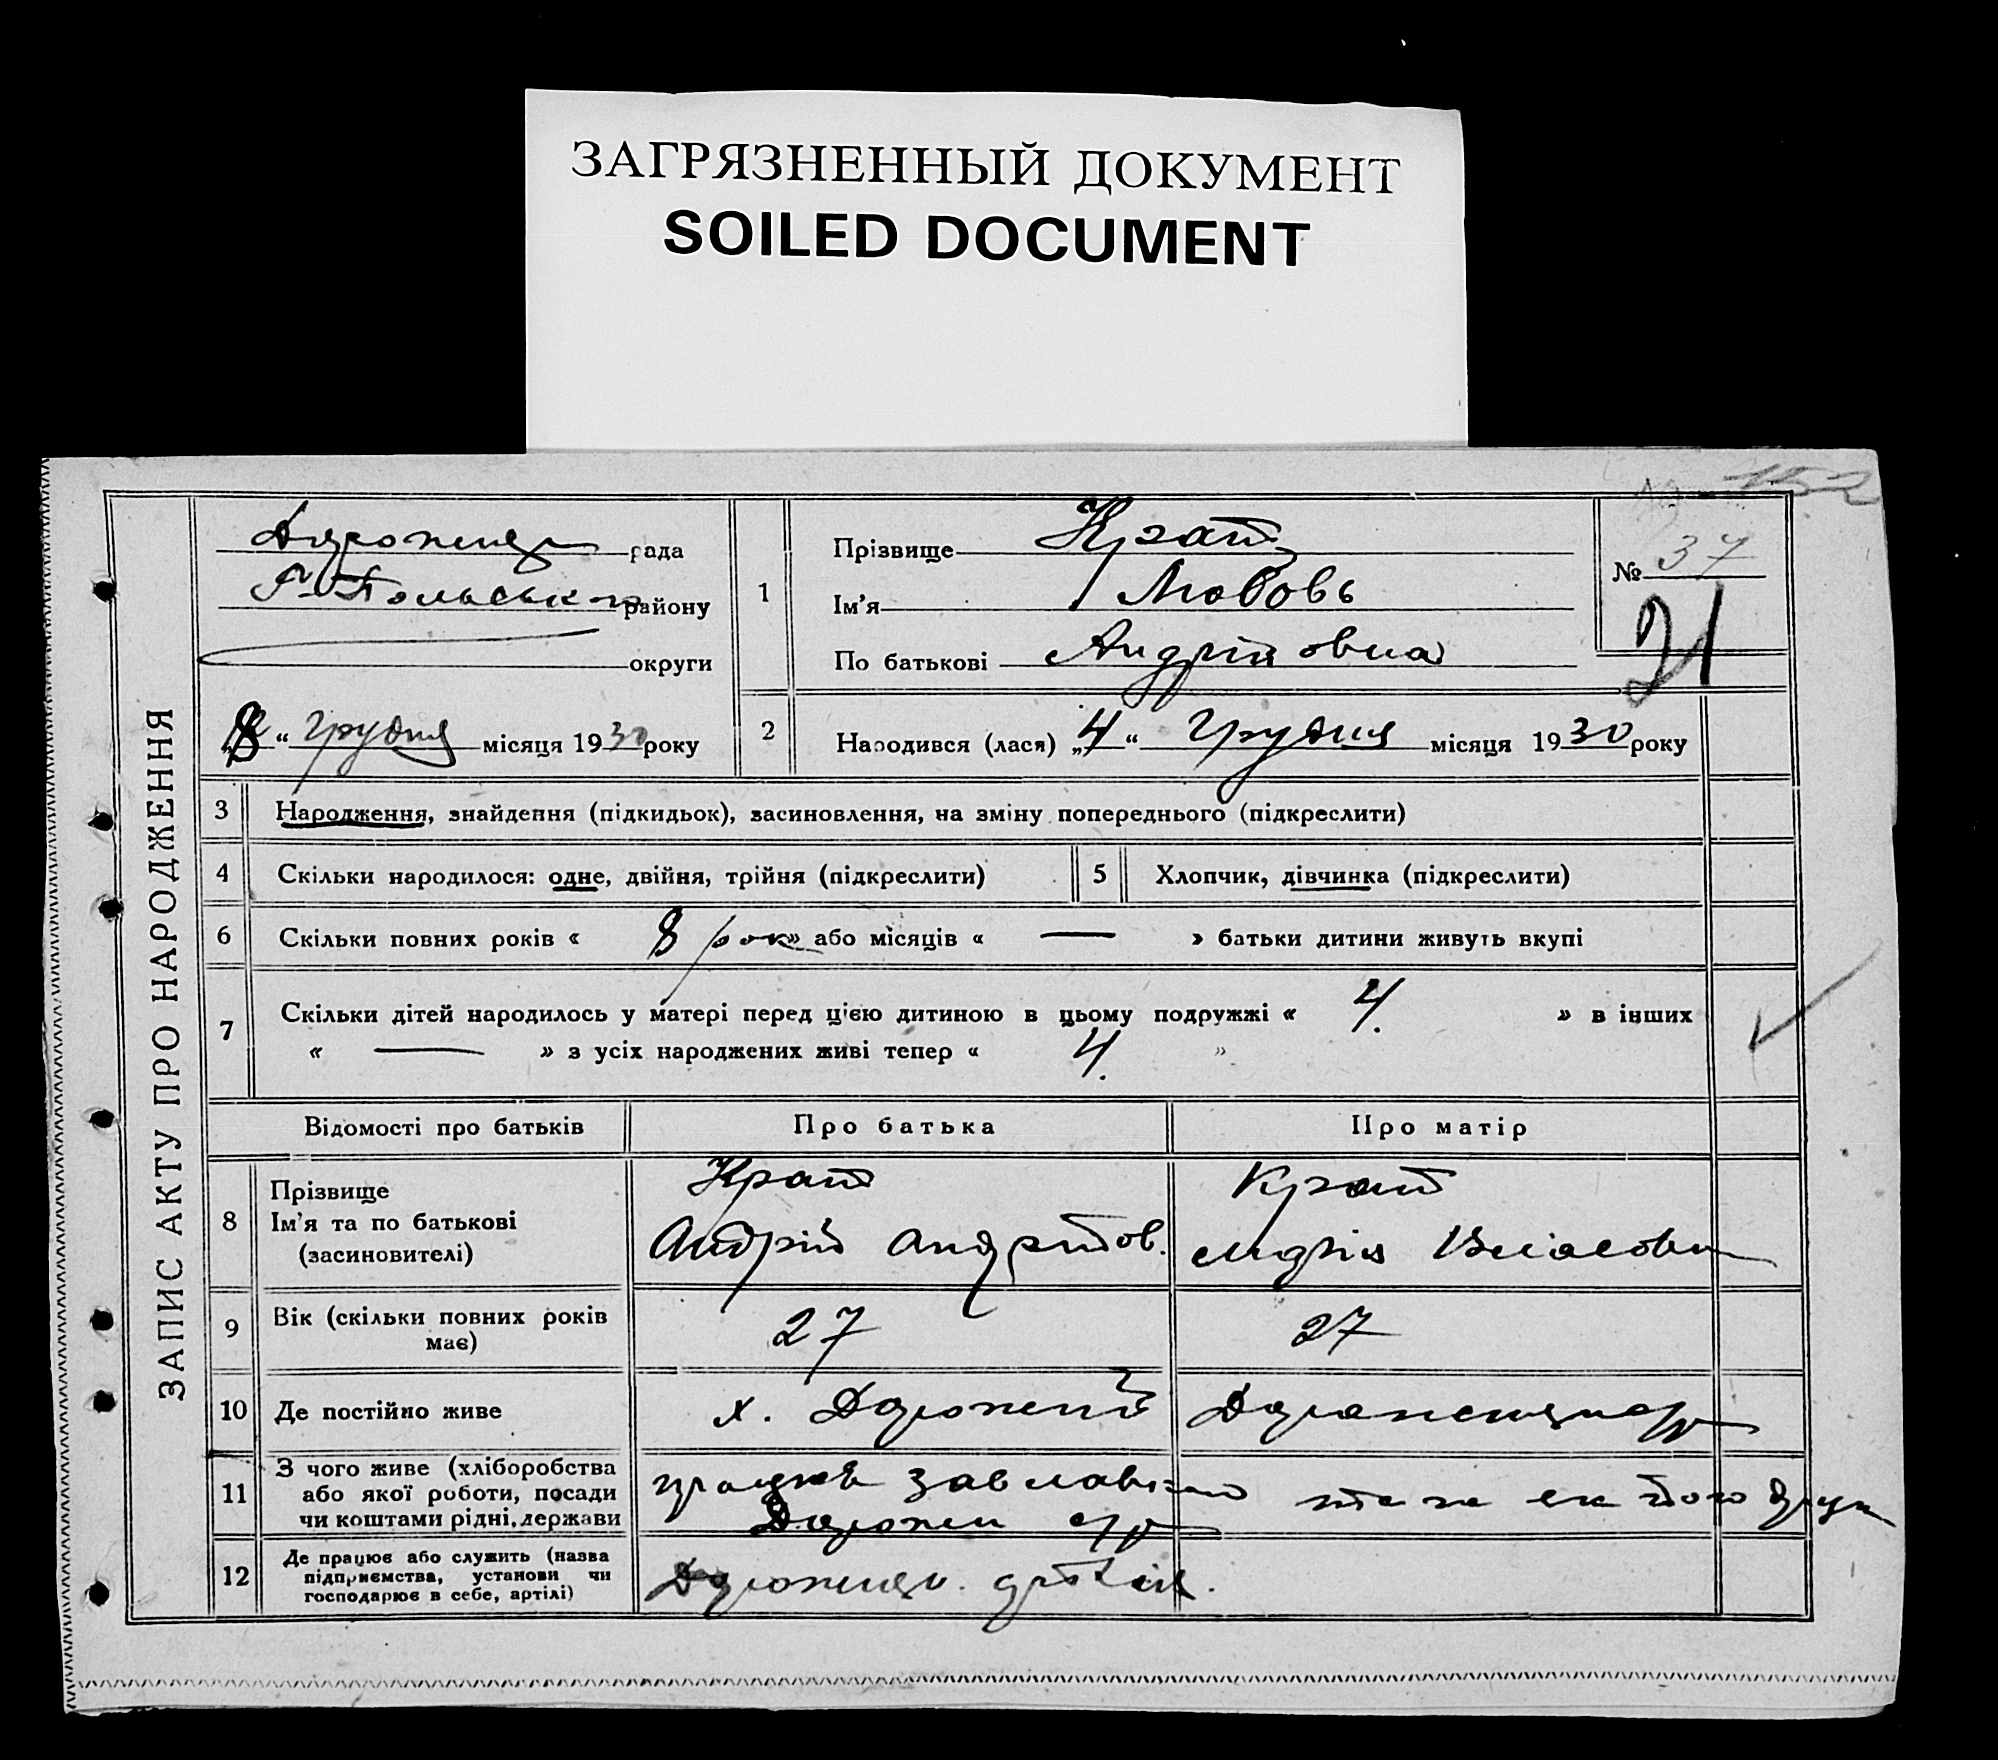 ЗАГРЯЗНЕННЫЙ ДОКУМЕНТ
SOILED DOCUMENT
152
ЗАПИС АКТУ ПРО НАРОДЖЕННЯ
рада
району
округи
„8“ грудня місяця 1930 року
1
Прізвище Крат
Ім'я Любовь
По батькові Андріївна
№ 37
21
2
Народився (лася) „4“ Грудня місяця 1930 року
3 Народження, знайдення (підкидьок), засиновлення, на зміну попереднього (підкреслити)
4 Скільки народилося: одне, двійня, трійня (підкреслити)
5 Хлопчик, дівчинка (підкреслити)
6 Скільки повних років « 8 рок » або місяців « — » батьки дитини живуть вкупі
7 Скільки дітей народилось у матері перед цією дитиною в цьому подружжі « 4. » в інших
« — » з усіх народжених живі тепер « 4. »
Відомості про батьків
Про батька
Про матір
8
Прізвище
Ім'я та по батькові
(засиновителі)
Крат
Андрій Андрійов.
Крат
Марія Власовн
9
Вік (скільки повних років
має)
27
27
10 Де постійно живе
х.
11
З чого живе (хліборобства
або якої роботи, посади
чи коштами рідні, держави
працює
його
12
Де працює або служить (назва
підприємства, установи чи
господарює в себе, артілі)